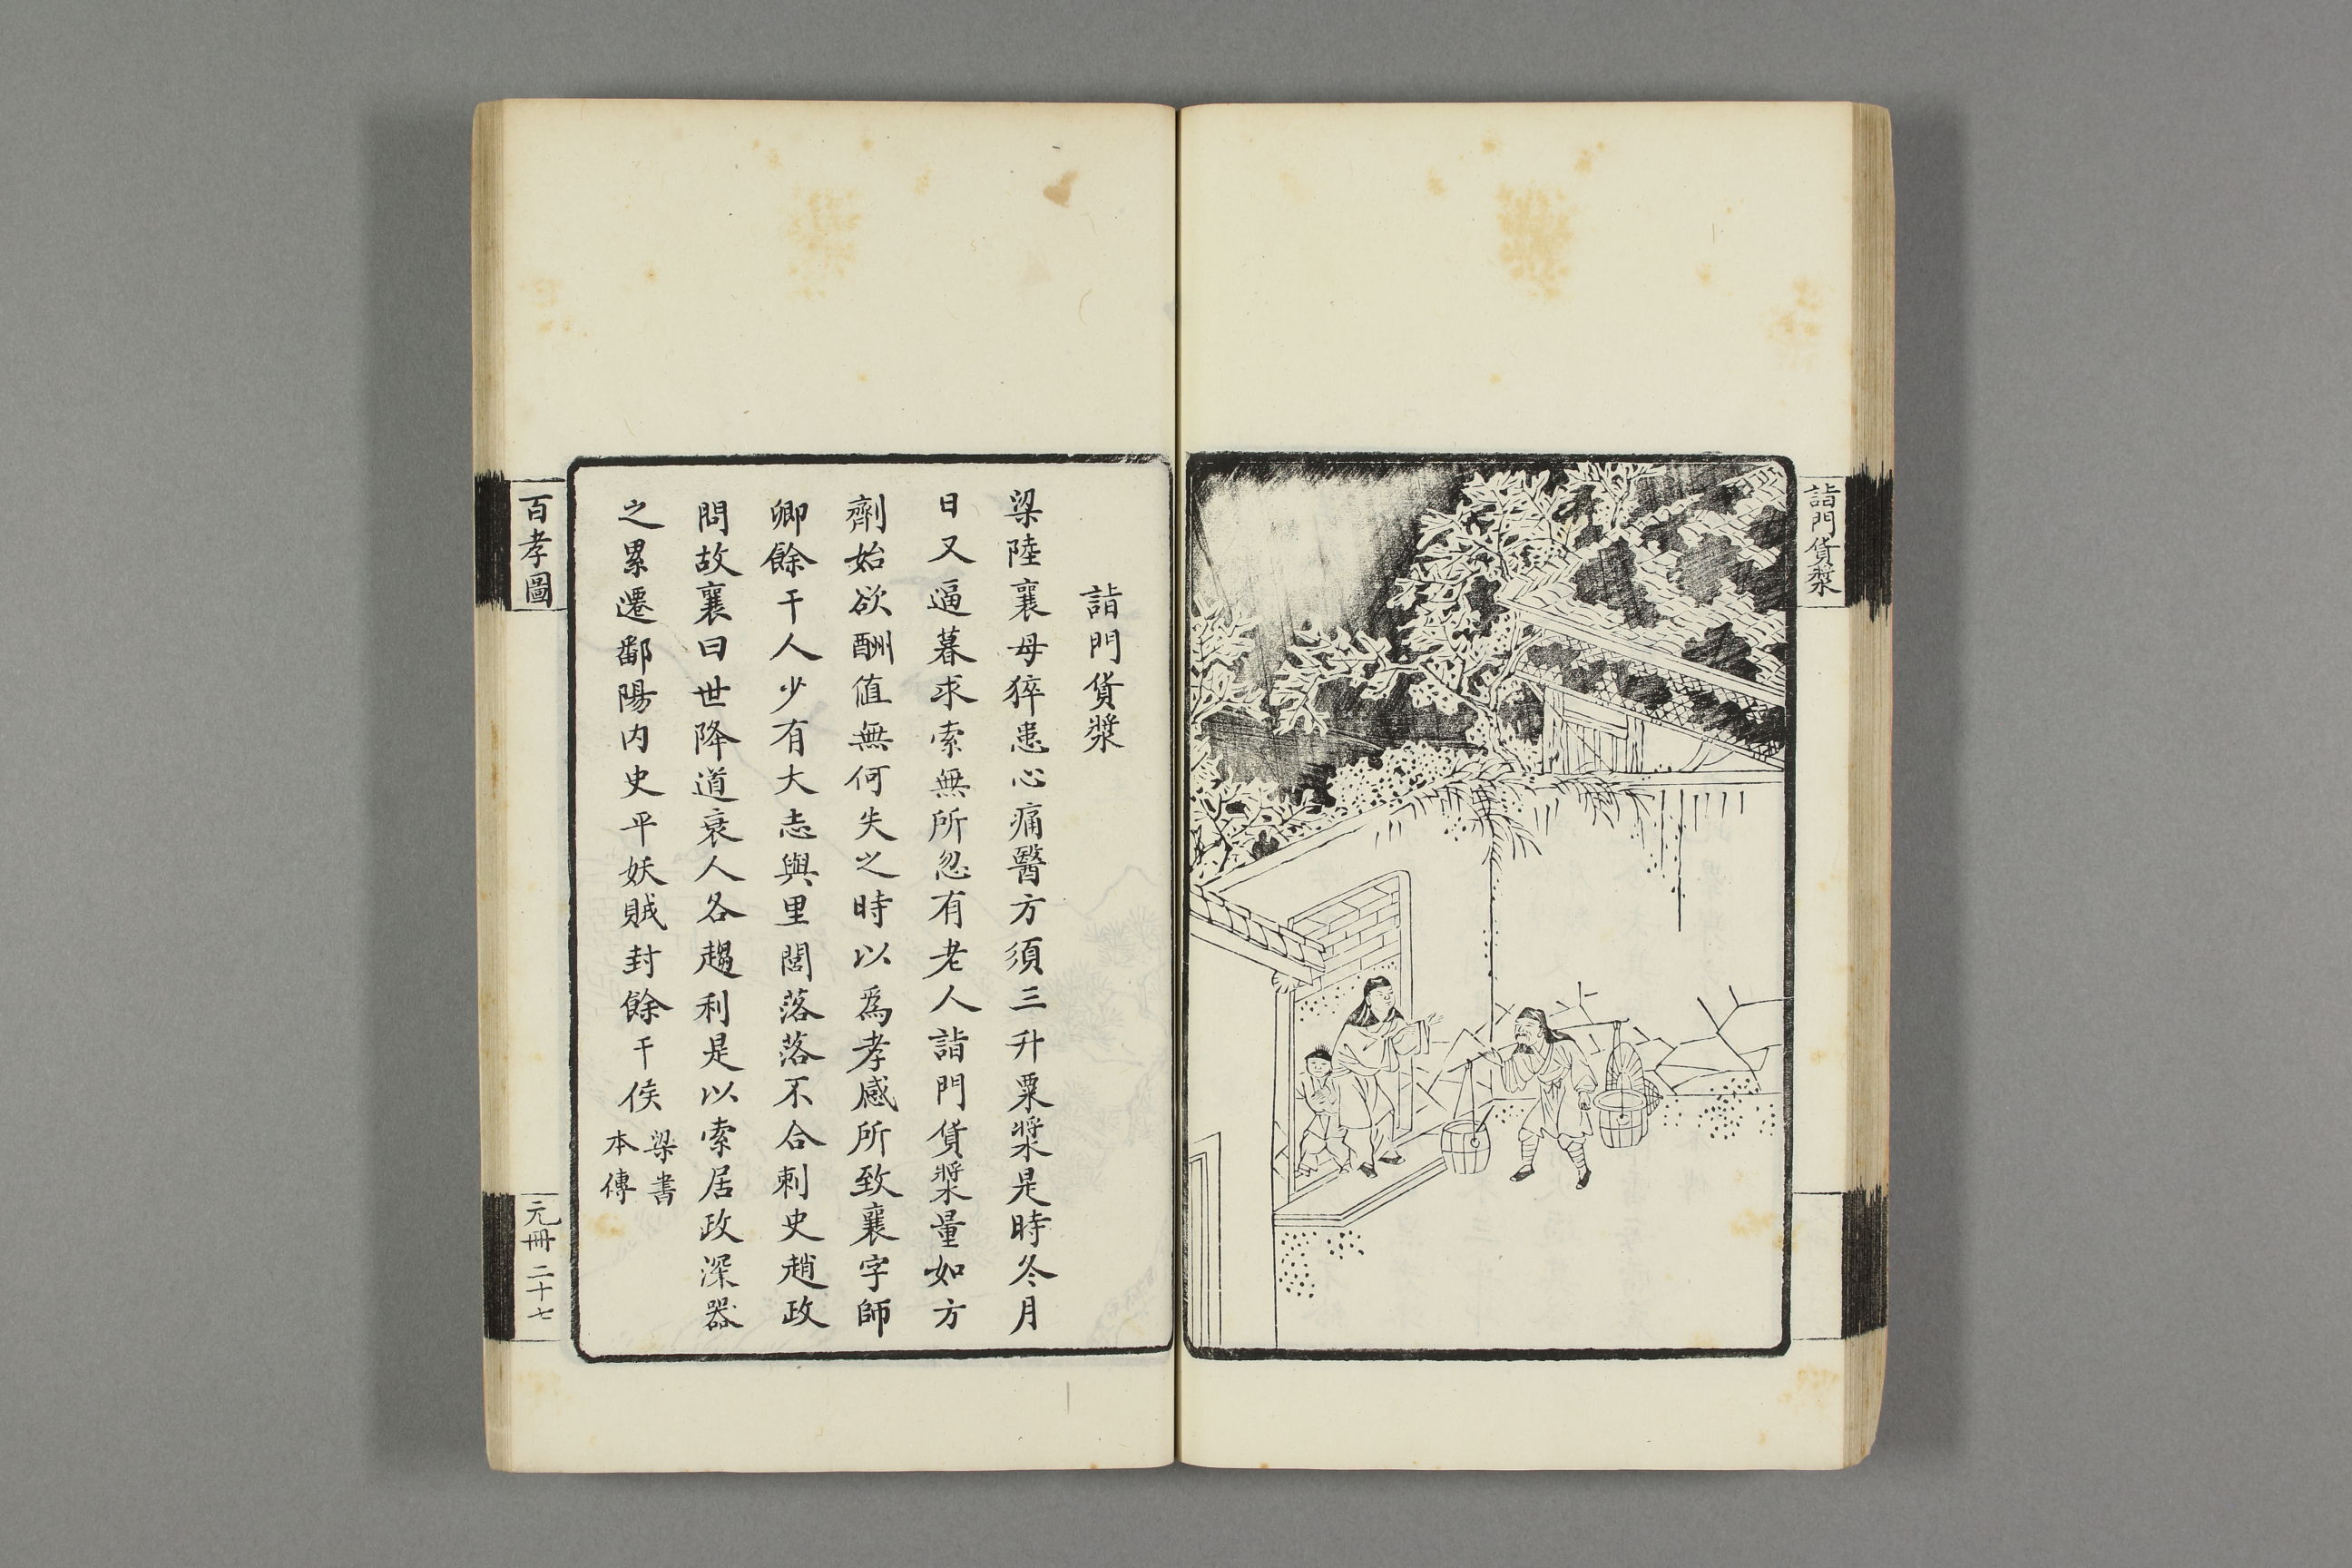 詣門貨漿
詣門貨漿
梁陸襄母猝患心痛醫方須三升粟漿是時冬月
日又逼暮求索無所忽有老人詣門貨漿量如方
劑始欲酬值無何失之時以爲孝感所致襄字師
卿餘干人少有大志與里閭落落不合刺史趙政
問故襄曰世降道衰人各趨利是以索居政深器
之累遷鄱陽内史平妖賊封餘干侯
梁書
本傳
百孝圖
元冊 二十七